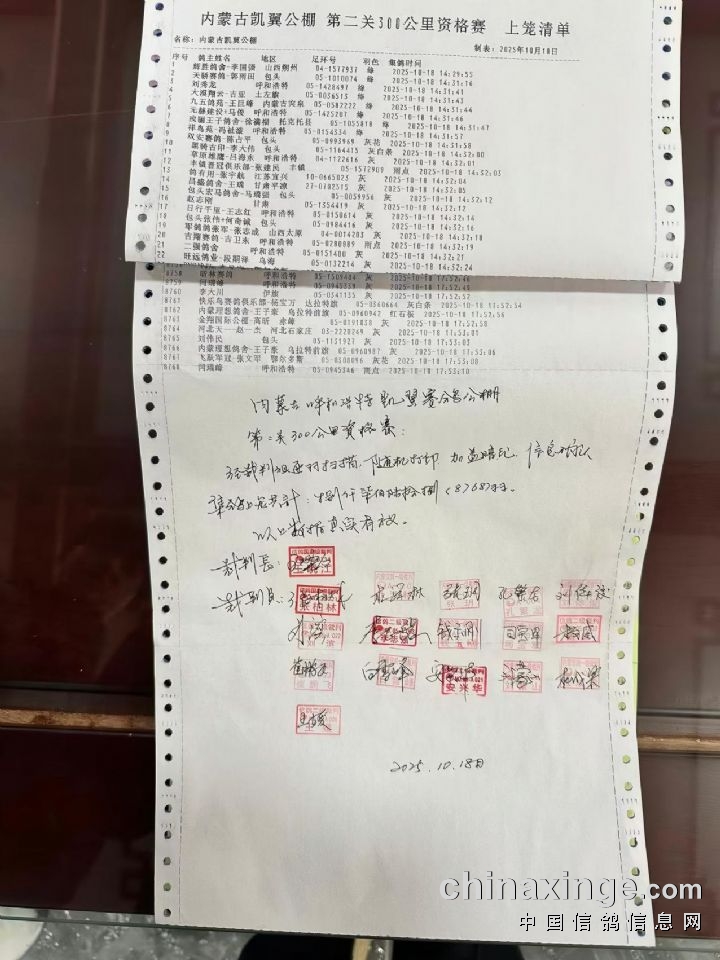 内蒙古凯翼公棚 第二关300公里资格赛 上笼清单
名称：内蒙古凯翼公棚 制表：2025年10月18日
序号 鸽主姓名 地区 足环号 羽色 集鸽时间
1 辉胜鸽舍-李国强 山西朔州 04-1577937 绛 2025-10-18 14:29:55
2 天骄赛鸽-郭雨田 包头 05-1010074 绛 2025-10-18 14:31:16
3 刘秀龙 呼和浩特 05-1428497 绛 2025-10-18 14:31:41
4 大漠翔云-吉亚 土左旗 05-0036515 绛 2025-10-18 14:31:43
5 九五鸽苑-王巨峰 内蒙古突泉 05-0587222 绛 2025-10-18 14:31:44
6 元赫建设+马俊 呼和浩特 05-1425287 绛 2025-10-18 14:31:46
7 托克托县 05-1055818 绛 2025-10-18 14:31:47
8 呼和浩特 05-0154334 绛 2025-10-18 14:31:57
9 双安赛鸽-陈占平 包头 05-0993969 灰花 2025-10-18 14:31:58
10 黑骑吉印-李大伟 包头 05-1164413 灰白条 2025-10-18 14:32:00
11 草原雄鹰-吕海永 呼和浩特 04-1122616 灰 2025-10-18 14:32:01
12 丰镇晋冠俱乐部-张建民 丰镇 05-1572909 雨点 2025-10-18 14:32:03
13 鸽有用-张宇彪 江苏宜兴 10-0665023 灰 2025-10-18 14:32:04
14 昌盛鸽舍-王瑞 甘肃平凉 27-0782515 灰 2025-10-18 14:32:05
15 包头宏马鸽舍-马瑞强 包头 05-0059956 灰 2025-10-18 14:32:12
16 赵志刚 甘肃 05-1354419 灰 2025-10-18 14:32:12
17 日行千里-王志红 呼和浩特 05-0150614 灰 2025-10-18 14:32:14
18 包头张伟+何奇诚 包头 05-0151416 灰 2025-10-18 14:32:16
19 军鸽鸽张军-张志成 山西太原 04-0014203 灰 2025-10-18 14:32:18
20 吉翔赛鸽-古卫永 呼和浩特 05-0280889 雨点 2025-10-18 14:32:19
21 二强鸽舍 呼和浩特 05-0984400 灰 2025-10-18 14:32:21
22 旺远鸽业-段期泽 乌海 05-0132214 灰 2025-10-18 14:32:24
8758 昕林赛鸽 呼和浩特 05-1509484 灰
8759 何瑞峰 呼和浩特 05-0945339 灰 2025-10-18 17:52:45
8760 李大川 伊旗 05-0341135 灰 2025-10-18 17:52:49
8761 快乐鸟赛鸽俱乐部-杨宝万 达拉特旗 05-0360664 灰白条 2025-10-18 17:52:54
8762 内蒙理想鸽舍-王子豪 乌拉特前旗 05-0960942 红石板 2025-10-18 17:52:56
8763 金翔国际公棚-高昕 赤峰 05-0191838 灰 2025-10-18 17:52:58
8764 河北天一-赵一杰 河北石家庄 03-2228249 灰 2025-10-18 17:53:01
8765 刘伟民 包头 05-1131927 灰 2025-10-18 17:53:03
8766 内蒙理想鸽舍-王子豪 乌拉特前旗 05-0960987 灰 2025-10-18 17:53:06
8767 飞跃军冠-张文军 鄂尔多斯 05-0308096 灰花 2025-10-18 17:53:08
8768 闫瑞峰 呼和浩特 05-0945346 雨点 2025-10-18 17:53:10
内蒙古呼和浩特凯翼赛鸽公棚
第二关300公里资格赛：
经裁判组逐羽扫描、随机打印、加盖暗记、信息确认
集鸽上笼共计：捌仟柒佰陆拾捌（8768）羽。
以上数据真实有效。
裁判长：
裁判员：
柏林
安兴华
2025.10.18日
chinaxinge.com
中国信鸽信息网